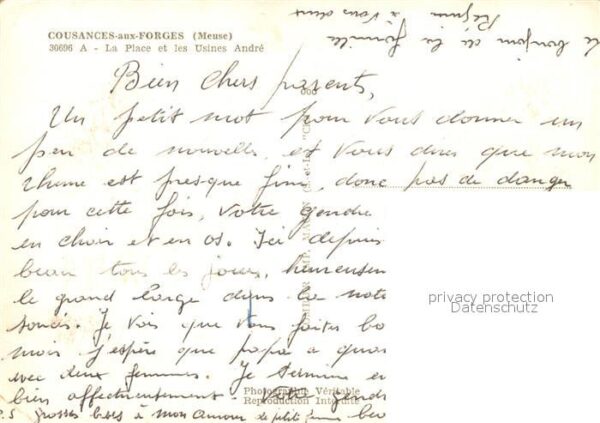 COUSANCES-aux-FORGES (Meuse)
30696 A - La Place et les Usines André
le bonjour de la famille
à vous deux
Bien chers parents,
Un petit mot pour vous donner un
peu de nouvelle, et vous dires que mon
rhume est presque fini, donc pas de danger
pour cette fois, votre gendre
en chair et en os. Ici depuis
beau tous les jours, heureusem
le grand large dans la note
soucis. Je vois que vous faites bo
mois j'espère que papa a quoi
avec deux femmes. Je termine en
bien affectueusement. Votre gendre
P.S grosses bises à mon amour de petite femme
Photographie Véritable
Reproduction Interdite
privacy protection
Datenschutz